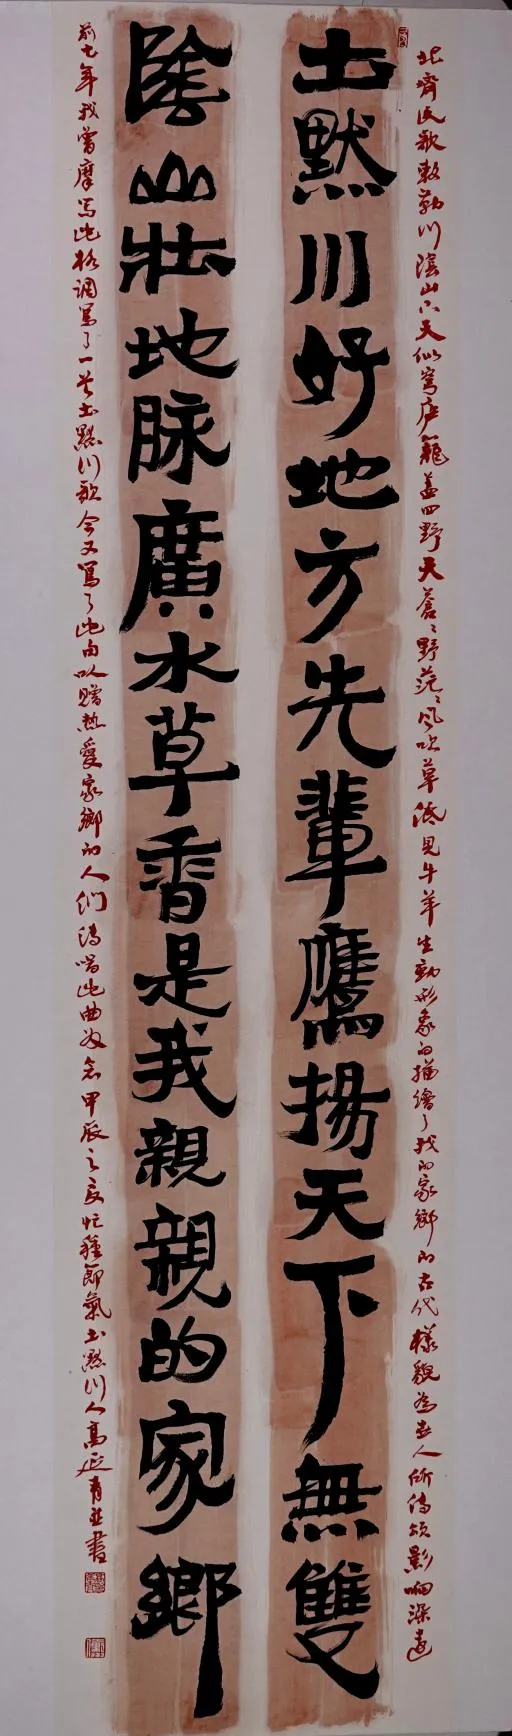 北齊民歌敕勒川陰山下天似穹廬籠蓋四野天蒼〻野茫〻風吹草低見牛羊生動形象的描繪了我的家鄉的古代樣貌為世人所傳頌影响深遠
土默川好地方先輩鷹揚天下無雙
陰山壯地脉廣水草香是我親親的家鄉
前七年我曾摩写此格调寫了一首土默川歌今又寫了此句以贈热愛家鄉的人们傳唱此曲为念甲辰之夏忙種節氣土默川人高延青並書